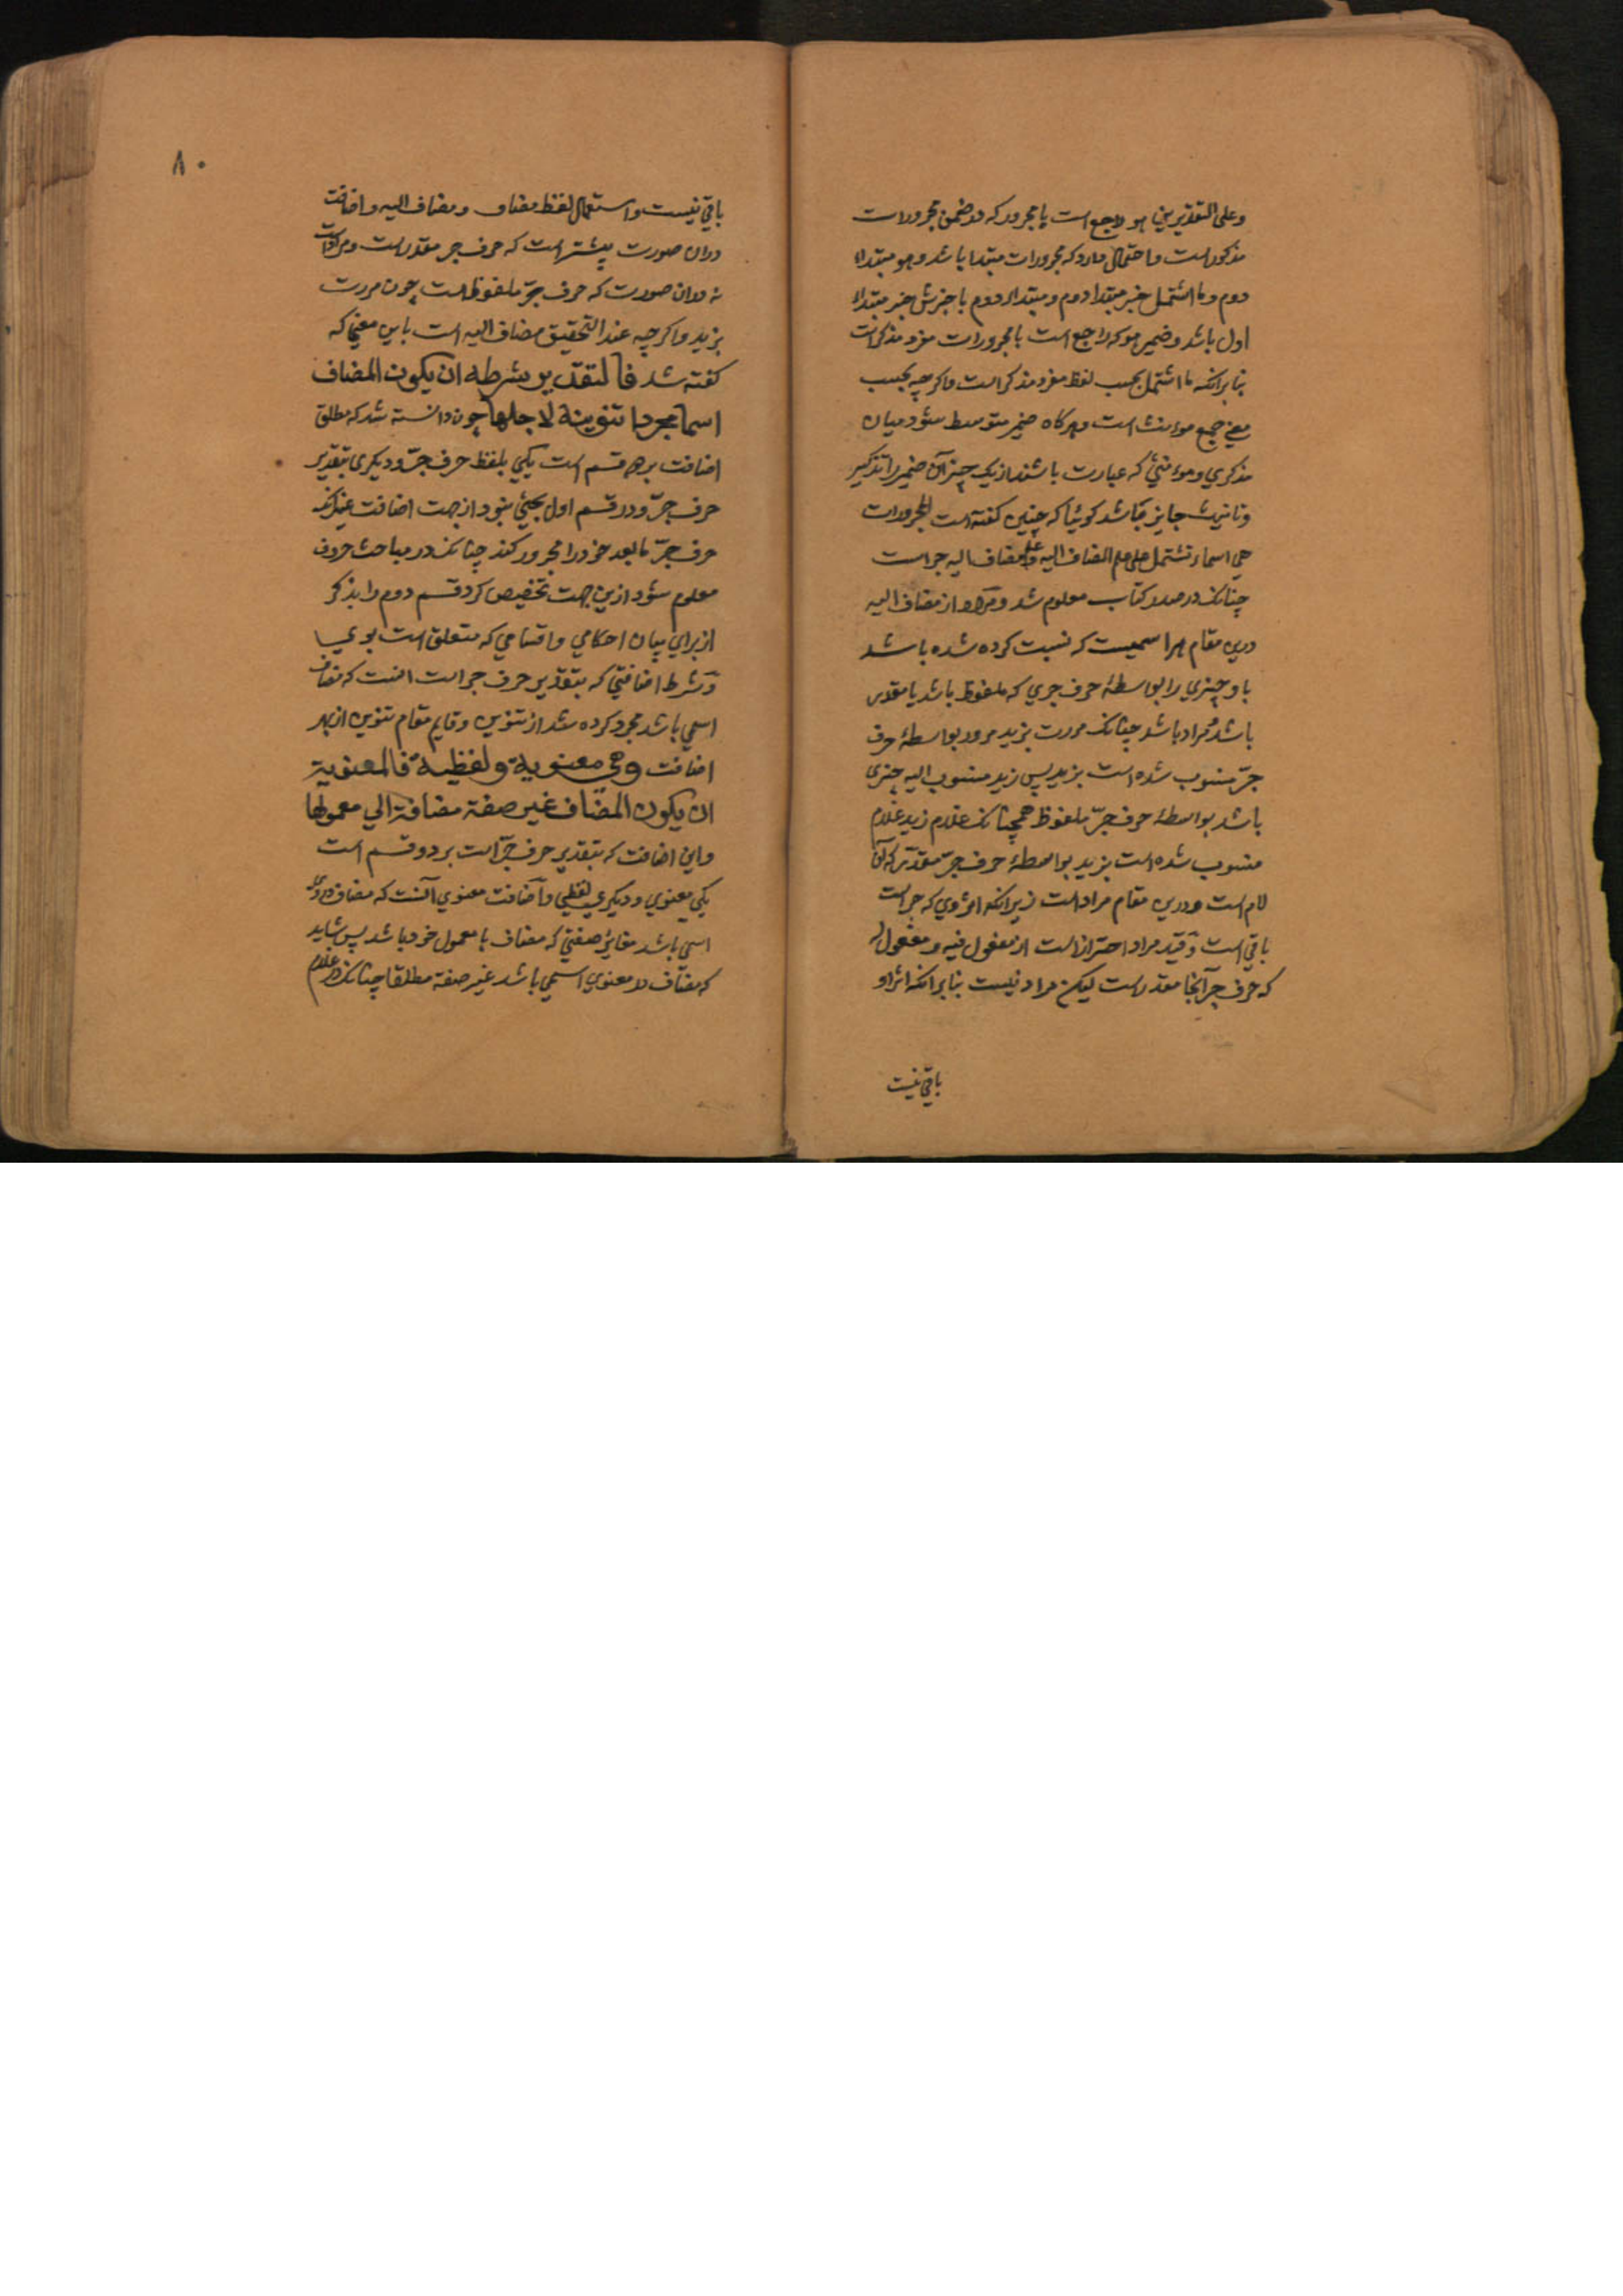 وعلی التقدیرین هو راجع است با مجرور که در ضمن مجرورات
مذکور است و احتمال دارد که مجرورات مبتدا باشد و هو مبتداء
دوم و ما اشتمل خبر مبتدا دوم و مبتداء دوم با خبرش خبر مبتداء
اول باشد و ضمیر هو که راجع است با مجرورات مفرد مذکر است
بنابر آنکه ما اشتمل بحسب لفظ مفرد مذکر است و اکر چه بحسب
معنی جمع مونث است و هر کاه ضمیر متوسط شود میان
مذکری و مونثی که عبارت باشند از یک چیز آن ضمیر را تذکیر
و تانیث جایز باشد کوئیا که چنین کفته است المجرورات
هی اسماء تشتمل علی علم المضاف الیه و علم مضاف الیه جر است
چنانک در صدر کتاب معلوم شد و مراد از مضاف الیه
درین مقام هر اسمیست که نسبت کرده شده باشد
باو چیزی را بواسطهٔ حرف جری که ملفوظ باشد یا مقدر
باشد مراد باشد چنانک مررت بزید مرور بواسطهٔ حرف
جرّ منسوب شده است بزید پس زید منسوب الیه چیزی
باشد بواسطهٔ حرف جرّ ملفوظ همچنانک غلام زید غلام
منسوب شده است بزید بواسطهٔ حرف جرّ مقدّر که آن
لام است و درین مقام مراد است زیرا که اثر وی که جر است
باقی است و قید مراد احتراز است از مفعول فیه و مفعول له
که حرف جر آنجا مقدر است لیکن مراد نیست بنابر آنکه اثر او
باقی نیست
۸۰
باقی نیست و استعمال لفظ مضاف و مضاف الیه و اضافت
دران صورت بیشتر است که حرف جر مقدر است و مراد است
نه دران صورت که حرف جرّ ملفوظ است چون مررت
بزید و اکر چه عند التحقیق مضاف الیه است باین معنی که
کفته شد فالتقدیر شرطه ان یکون المضاف
اسما مجردا تنوینه لاجلها چون دانسته شد که مطلق
اضافت بر دو قسم است یکی بلفظ حرف جرّ و دیکری بتقدیر
حرف جرّ و در قسم اول بحثی نبود از جهت اضافت غیر آنکه
حرف جرّ ما بعد خود را مجرور کند چنانک در مباحث حروف
معلوم شود ازین جهت تخصیص کرد قسم دوم را بذکر
از برای بیان احکامی و اقسامی که متعلق است بوی
و شرط اضافتی که بتقدیر حرف جر است آنست که مضاف
اسمی باشد مجرد کرده شد از تنوین و قایم مقام تنوین از بهر
اضافت وهی معنویة ولفظیة فالمعنویة
ان یکون المضاف غیر صفة مضافة الی معمولها
و این اضافت که بتقدیر حرف جرّ است بر دو قسم است
یکی معنوی و دیکری لفظی و اضافت معنوی آنست که مضاف در وی
اسمی باشد مغایر صفتی که مضاف با معمول خود باشد پس شاید
که مضاف در معنوی اسمی باشد غیر صفة مطلقا چنانک در غلام